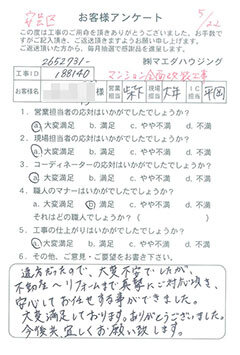 安芸区
お客様アンケート
5/22
この度は工事のご用命を頂きありがとうございました。お手数で
すがご記入頂き、ご返送頂きますようお願い申し上げます。
ご返送頂いた方から、毎月抽選で感謝品を進呈します。
2652931-
㈱マエダハウジング
工事ID 188140
マンション全面改装工事
様 営業担当 柴下 現場担当 大平 IC担当 平岡
1. 営業担当者の応対はいかがでしたでしょうか?
a. 大変満足 b. 満足 c. やや不満 d. 不満
2. 現場担当者の応対はいかがでしたでしょうか?
a. 大変満足 b. 満足 c. やや不満 d. 不満
3. コーディネーターの応対はいかがでしたでしょうか?
a. 大変満足 b. 満足 c. やや不満 d. 不満
4. 職人のマナーはいかがでしたでしょうか?
a. 大変満足 b. 満足 c. やや不満 d. 不満
それはどの職人でしょうか?( )
5. 工事の仕上がりはいかがでしたでしょうか?
a. 大変満足 b. 満足 c. やや不満 d. 不満
6. その他、ご意見・ご要望をお書き下さい。
遠方だったので、大変不安でしたが、
不動産〜リフォームまで真摯にご対応頂き、
安心してお任せする事ができました。
大変満足しております。ありがとうございました。
今後共、宜しくお願い致します。